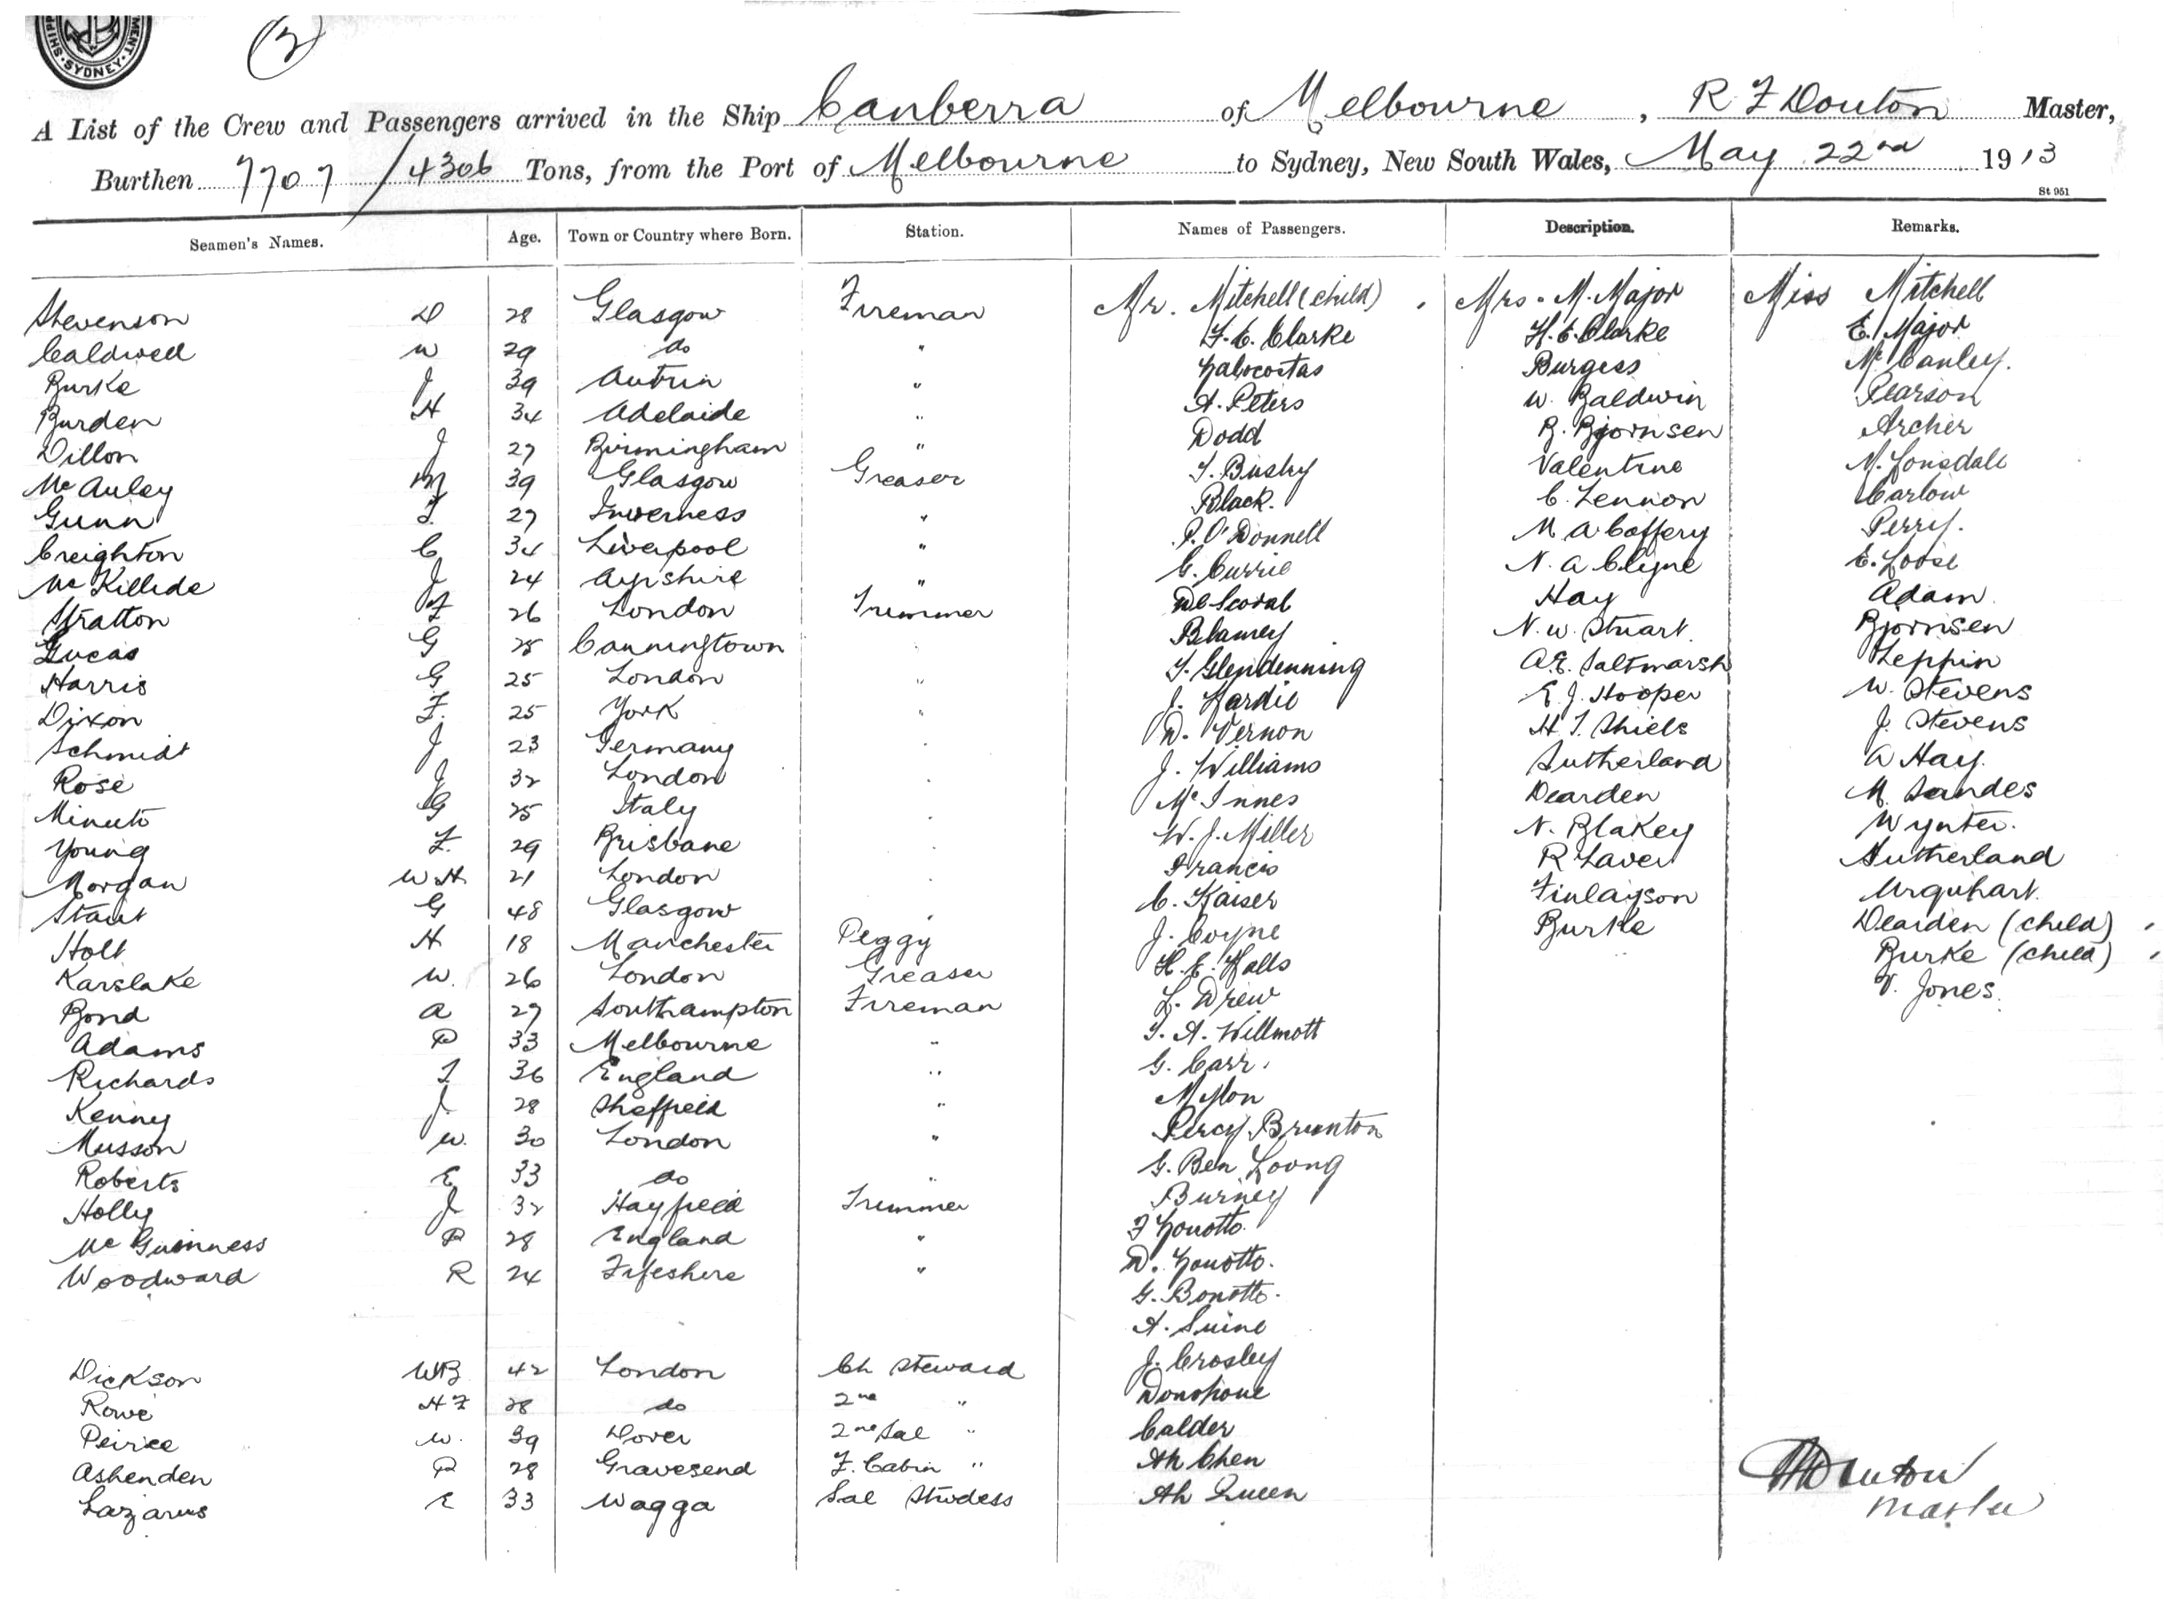 SHIPP MENT. SYDNEY.
(2)
A List of the Crew and Passengers arrived in the Ship Canberra of Melbourne, R F Douton Master,
Burthen 7707/4306 Tons, from the Port of Melbourne to Sydney, New South Wales, May 22nd 1913
St 951
Seamen's Names. Age. Town or Country where Born. Station. Names of Passengers. Description. Remarks.
Stevenson D 28 Glasgow Fireman Mr. Mitchell (child) Mrs. M. Major Miss Mitchell
Caldwell W 29 do " F. C. Clarke H. E. Clarke E. Major
Burke J 39 Antrim " Burgess McCauley.
Burden H 34 Adelaide " A. Peters W. Baldwin Pearson
Dillon J 27 Birmingham " Dodd B. Bjornsen Archer
McAuley M 39 Glasgow Greaser T. Busby Valentine M. Lonsdale
Gunn F. 27 Inverness " Black. C. Lennon Carlow
Creighton C 34 Liverpool " P. O'Donnell M A Caffery Perry.
McKillide J 24 Ayrshire " G. Currie N. A Clyne E. Loose
Stratton F 26 London Trimmer Hay Adam
Lucas G 28 Canningtown Blamey N. W. Stuart. Bjornsen
Harris G 25 London " T. Glendenning A.E. Saltmarsh Leppin
Dixon F. 25 York " J. Hardie E. J. Hooper W. Stevens
Schmidt J 23 Germany D. Vernon H T. Shiels J. Stevens
Rose J 32 London J. Williams Sutherland A Hay.
Minuto G 25 Italy McInnes Dearden M. Sandes
Young F. 29 Brisbane W. J. Miller N. Blakey Wynter.
Morgan W H 21 London Francis R Laver Sutherland
Staut G 48 Glasgow C. Kaiser Finlayson Urquhart.
Holt H 18 Manchester Peggy J. Coyne Burke Dearden (child)
Karslake W. 26 London Greaser H. E. Halls Burke (child)
Bond A 27 Southampton Fireman L. Drew V. Jones.
Adams P 33 Melbourne " T. A. Willmott
Richards T 36 England " G. Carr.
Kenny J 28 Sheffield " Mylon
Musson W. 30 London " Percy Brunton
Roberts E 33 do " G. Ben Loong
Holly J 32 Hayfield Trimmer Burney
McGuinness P 28 England " F Zonotto.
Woodward R 24 Fifeshire " D. Zonotto.
G. Bonotto.
A. Suine
Dickson WB 42 London Ch Steward J. Crosley
Rowe H F 28 do 2nd " Donohoue
Peirce W. 39 Dover 2nd Sal " Calder
Ashenden P 28 Gravesend F. Cabin " Ah Chen
Lazarus E 33 Wagga Sal Stwdess Ah Queen
Douton
Master